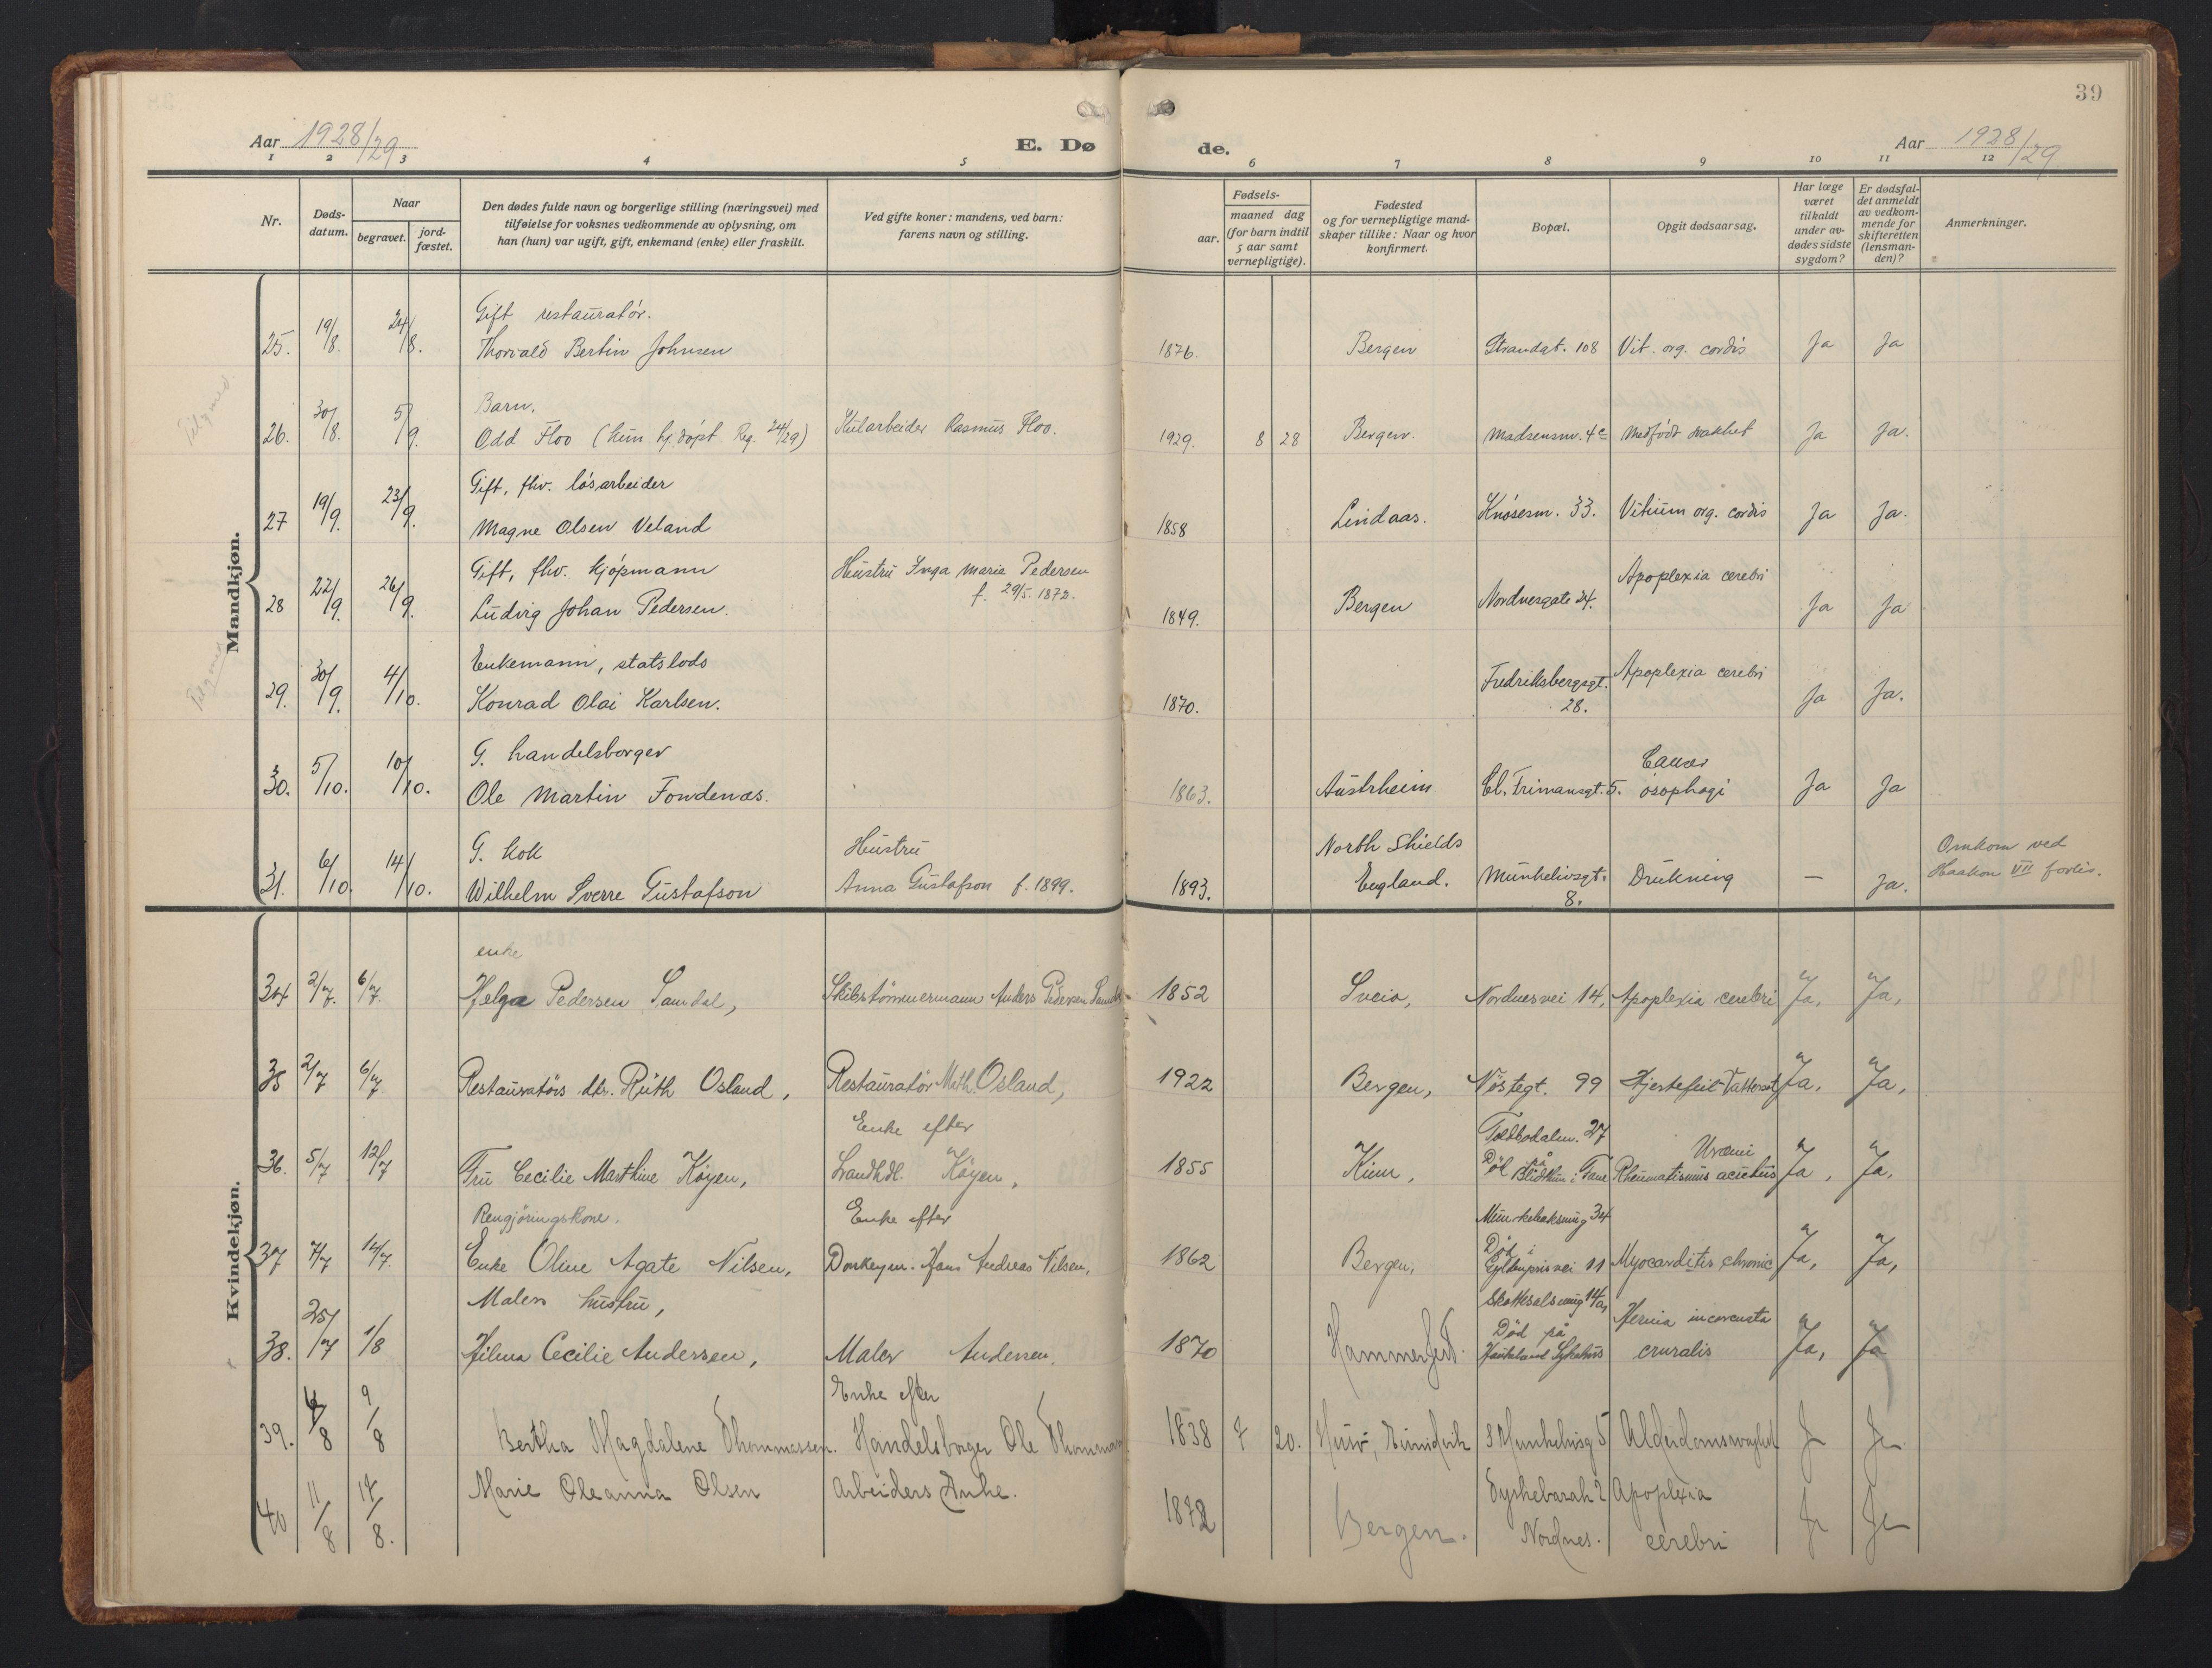 39
Aar 1928/29
E. Døde.
Aar 1928/29
1 2 3 4 5 6 7 8 9 10 11 12
Nr.
Døds-
datum.
Naar
begravet.
jord-
fæstet.
Den dødes fulde navn og borgerlige stilling (næringsvei) med
tilføielse for voksnes vedkommende av oplysning, om
han (hun) var ugift, gift, enkemand (enke) eller fraskilt.
Ved gifte koner: mandens, ved barn:
farens navn og stilling.
Fødsels-
aar.
maaned dag
(for barn indtil
5 aar samt
vernepligtige).
Fødested
og for vernepligtige mand-
skaper tillike: Naar og hvor
konfirmert.
Bopæl.
Opgit dødsaarsag.
Har læge
været
tilkaldt
under av-
dødes sidste
sygdom?
Er dødsfal-
det anmeldt
av vedkom-
mende for
skifteretten
(lensman-
den)?
Anmerkninger.
Mandkjøn.
Gift restauratør.
25. 19/8. 24/8. Thorvald Bertin Johnsen 1876. Bergen Strandgt. 108 Vit. org. cordis Ja Ja
Barn.
26. 30/8. 5/9. Odd Floo (hjm. hj. døpt Reg. 24/29) Kularbeider Rasmus Floo. 1929. 8 28 Bergen. Madsensm. 4c Medfødt svakhet Ja Ja.
Gift, fhv. løsarbeider
27 19/9. 23/9. Magne Olsen Veland 1858 Lindaas. Knøsesm. 33. Vitium org. cordis Ja Ja.
Gift, fhv. kjøpmann Hustru Inga Maria Pedersen
f. 29/5. 1872. Apoplexia cerebri
28 22/9. 26/9. Ludvig Johan Pedersen. 1849. Bergen Nordnesgate 24. Ja Ja
Enkemann, statslods
Fredriksbergsgt. Apoplexia cerebri
29. 30/9. 4/10. Konrad Olai Karlsen. 1870. 28. Ja Ja.
G. handelsborger Cancer
30. 5/10. 10/10. Ole Martin Fondenæs. 1863. Austrheim Cl. Frimansgt. 5. øsophagi Ja Ja
G. kok Hustru North Shields Omkom ved
31. 6/10. 14/10. Wilhelm Sverre Gustafson Anna Gustafson f. 1899. 1893. England. Munkelivsgt. Drukning — Ja. Haakon VII forlis.
8.
Kvindekjøn.
enke
34 2/7. 6/7. Helga Pedersen Samdal, Skibstømmermann Anders Pedersen 1852 Sveio, Nordnesvei 14, Apoplexia cerebri Ja, Ja,
35 2/7 6/7. Restauratørs dtr. Ruth Osland, Restauratør Math. Osland, 1922 Bergen, Nøstegt. 99 Hjertefeil Ja, Ja,
Enke efter Tollbodalm. 27
Uræmi
36. 5/7 12/7 Fru Cecilie Marthine Køyen, Landhdl. Køyen, 1855 Kinn, Død på i Fane Rheumatismus Ja, Ja,
Rengjøringskone. Enke efter 34
Død i
37 7/7 14/7. Enke Oline Agate Nilsen, Donkeym. Hans Andreas Nilsen, 1862 Bergen, Gyldenprisvei 11 Myocarditis chronic Ja, Ja,
Malers hustru, Hernia
Død på
38. 25/7 1/8 Hilma Cecilie Andersen, Maler Andersen, 1870 Hammerfest. Haukeland Sykehus cruralis Ja, Ja
Enke efter
39. 6/8 9/8 Bertha Magdalene Thommassen. Handelsborger Ole 1838 7 20. 5 Alderdomssvaghet J J
Marie Oleanna Olsen Arbeiders Enke. 2 Apoplexia
40 11/8 17/8. 1872 Bergen. Nordnes. cerebri J J